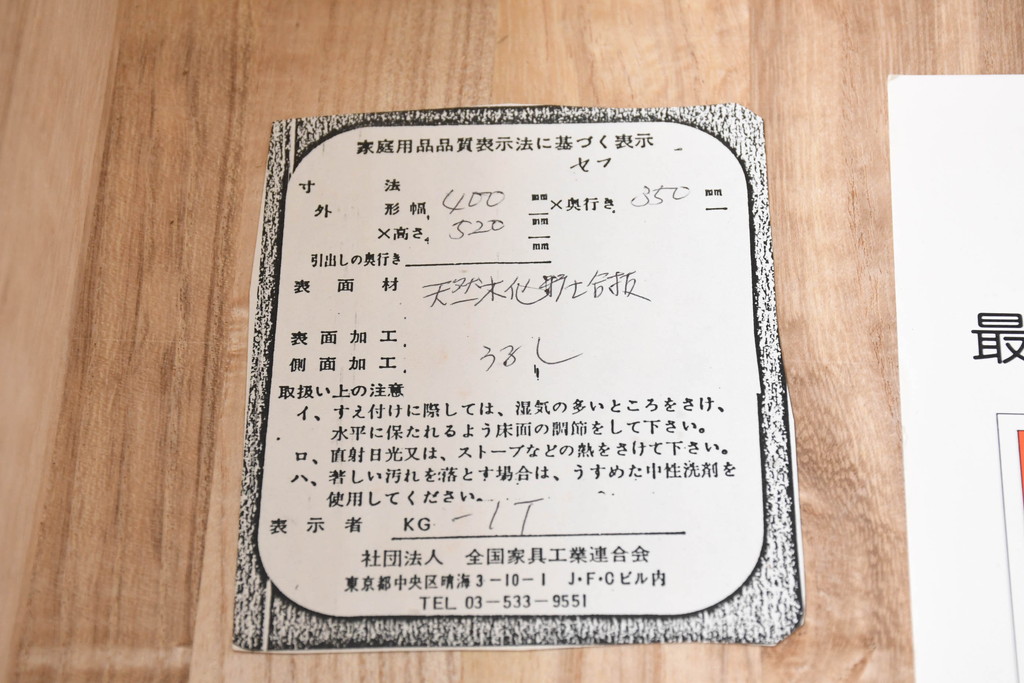 家庭用品品質表示法に基づく表示
寸法
外形幅 400 mm ×奥行き 350 mm
×高さ 520 mm
引出しの奥行き mm
表面材 天然木化粧合板
表面加工
側面加工 うるし
取扱い上の注意
イ、すえ付けに際しては、湿気の多いところをさけ、
水平に保たれるよう床面の調節をして下さい。
ロ、直射日光又は、ストーブなどの熱をさけて下さい。
ハ、著しい汚れを落とす場合は、うすめた中性洗剤を
使用してください。
表示者 KG -1T
社団法人 全国家具工業連合会
東京都中央区晴海3-10-1 J・F・Cビル内
TEL 03-533-9551
最